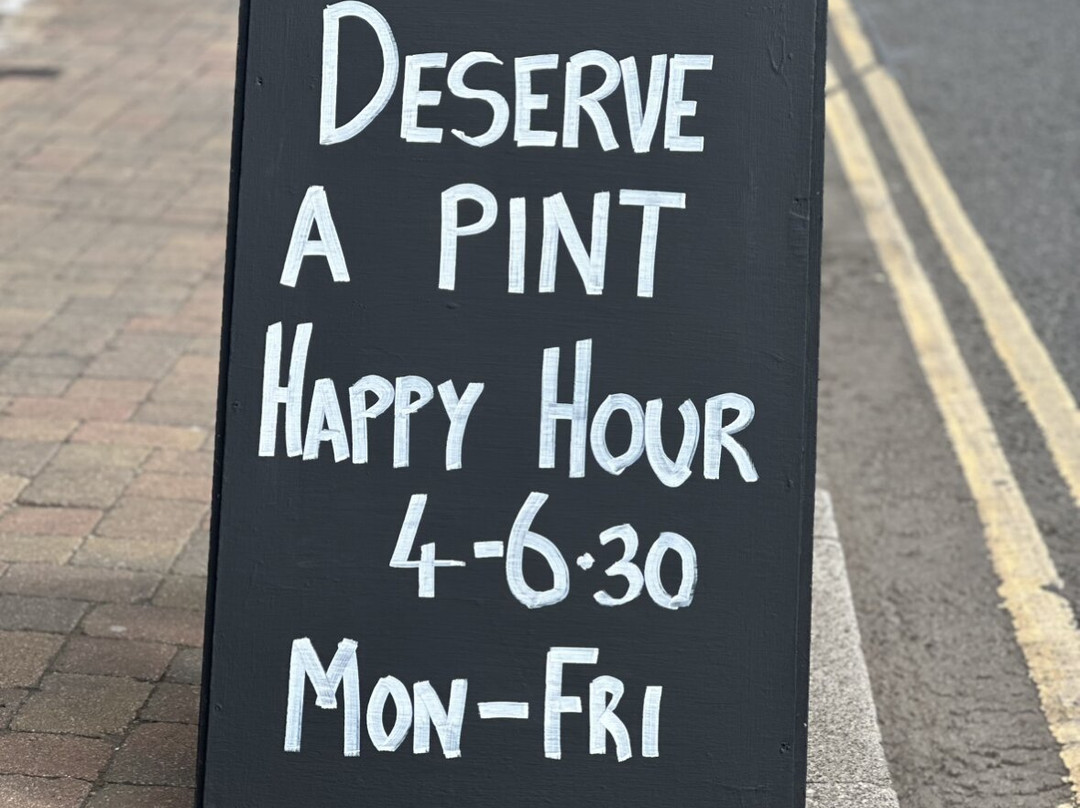 DESERVE
A PINT
HAPPY HOUR
4-6·30
MON-FRI